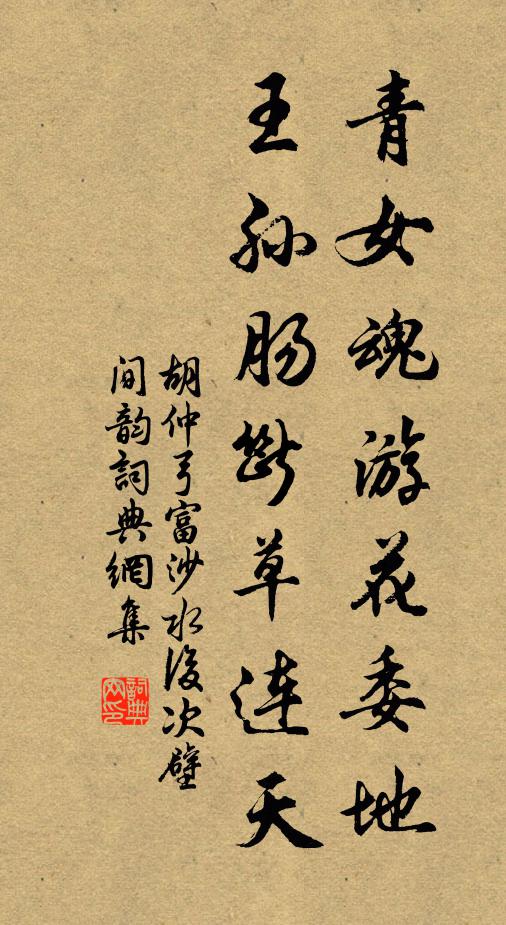 青女魂游花委地
王孙肠断草连天
胡仲弓富沙水後次壁
间韵詞典網集
詞典网印